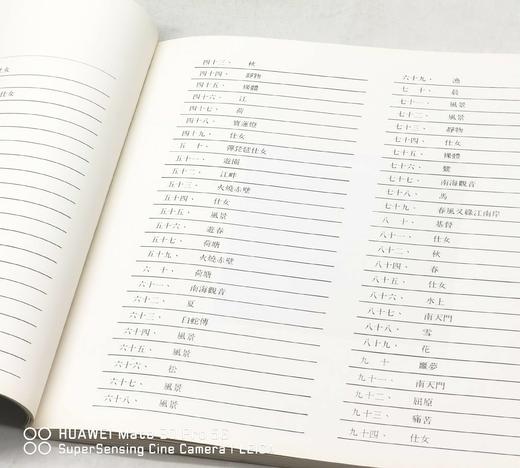 仕女
仕女
四十三、 秋
四十四、 靜物
四十五、 裸體
四十六、 江
四十七、 荷
四十八、 寶蓮燈
四十九、 仕女
五 十、 彈琵琶仕女
五十一、 遊園
五十二、 江畔
五十三、 火燒赤壁
五十四、 仕女
五十五、 風景
五十六、 遊春
五十七、 荷塘
五十九、 火燒赤壁
六 十、 荷塘
六十一、 南海觀音
六十二、 夏
六十三、 白蛇傳
六十四、 風景
六十五、 風景
六十六、 松
六十七、 風景
六十八、 風景
六十九、 漁
七 十、 晨
七十一、 風景
七十二、 風景
七十三、 靜物
七十四、 仕女
七十五、 裸體
七十六、 鷺
七十七、 南海觀音
七十八、 馬
七十九、 春風又綠江南岸
八 十、 基督
八十一、 仕女
八十二、 秋
八十四、 春
八十五、 仕女
八十六、 水上
八十七、 南天門
八十八、 雪
八十九、 花
九 十、 噩夢
九十一、 南天門
九十二、 屈原
九十三、 痛苦
九十四、 仕女
HUAWEI Mate
SuperSensing Cine Camera | LEICA